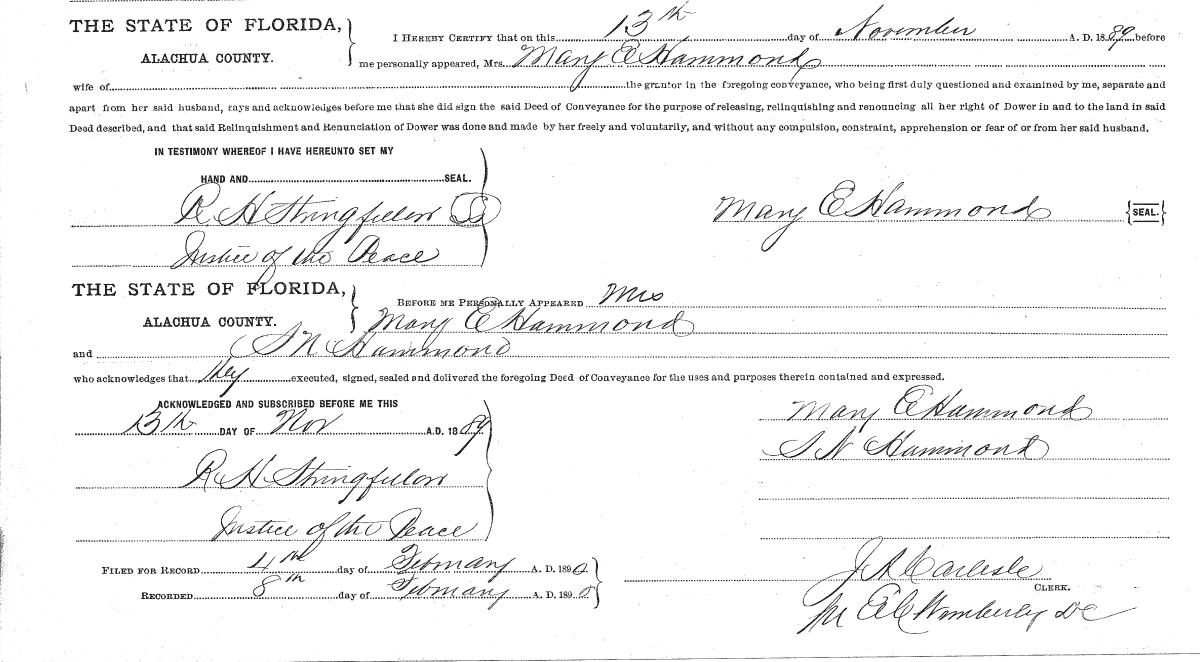 THE STATE OF FLORIDA,
ALACHUA COUNTY.
I HEREBY CERTIFY that on this 13th day of November A. D. 1889 before
me personally appeared, Mrs. Mary E Hammond
wife of the grantor in the foregoing conveyance, who being first duly questioned and examined by me, separate and
apart from her said husband, says and acknowledges before me that she did sign the said Deed of Conveyance for the purpose of releasing, relinquishing and renouncing all her right of Dower in and to the land in said
Deed described, and that said Relinquishment and Renunciation of Dower was done and made by her freely and voluntarily, and without any compulsion, constraint, apprehension or fear of or from her said husband.
IN TESTIMONY WHEREOF I HAVE HEREUNTO SET MY
HAND AND SEAL.
R H Stringfellow
Mary E Hammond {SEAL.}
Justice of the Peace
THE STATE OF FLORIDA,
ALACHUA COUNTY.
BEFORE ME PERSONALLY APPEARED Mrs
Mary E Hammond
and S N Hammond
who acknowledges that they executed, signed, sealed and delivered the foregoing Deed of Conveyance for the uses and purposes therein contained and expressed.
ACKNOWLEDGED AND SUBSCRIBED BEFORE ME THIS
13th DAY OF Nov A.D. 1889
Mary E Hammond
S N Hammond
R H Stringfellow
Justice of the Peace
FILED FOR RECORD 4th day of February A. D. 1890
RECORDED 8th day of February A. D. 1890
J A Carlisle
CLERK.
Wimberly DC